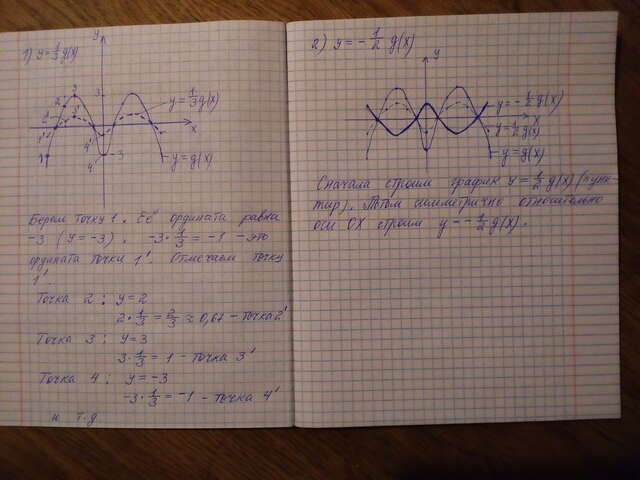 1) y = 1/3 g(x)
y
3
2
3
3'
2'
1'
4'
4
-3
1
x
y = 1/3 g(x)
y = g(x)
Берем точку 1. Её ордината равна
-3 (y = -3). -3 · 1/3 = -1 - это
ордината точки 1'. Отмечаем точку
1'.
Точка 2: y = 2
2 · 1/3 = 2/3 ≈ 0,67 - точка 2'
Точка 3: y = 3
3 · 1/3 = 1 - точка 3'
Точка 4: y = -3
-3 · 1/3 = -1 - точка 4'
и т.д.
2) y = - 1/2 g(x)
y
x
y = - 1/2 g(x)
y = 1/2 g(x)
y = g(x)
Сначала строим график y = 1/2 g(x) (пунк-
тир). Потом симметрично относительно
оси OX строим y = - 1/2 g(x).